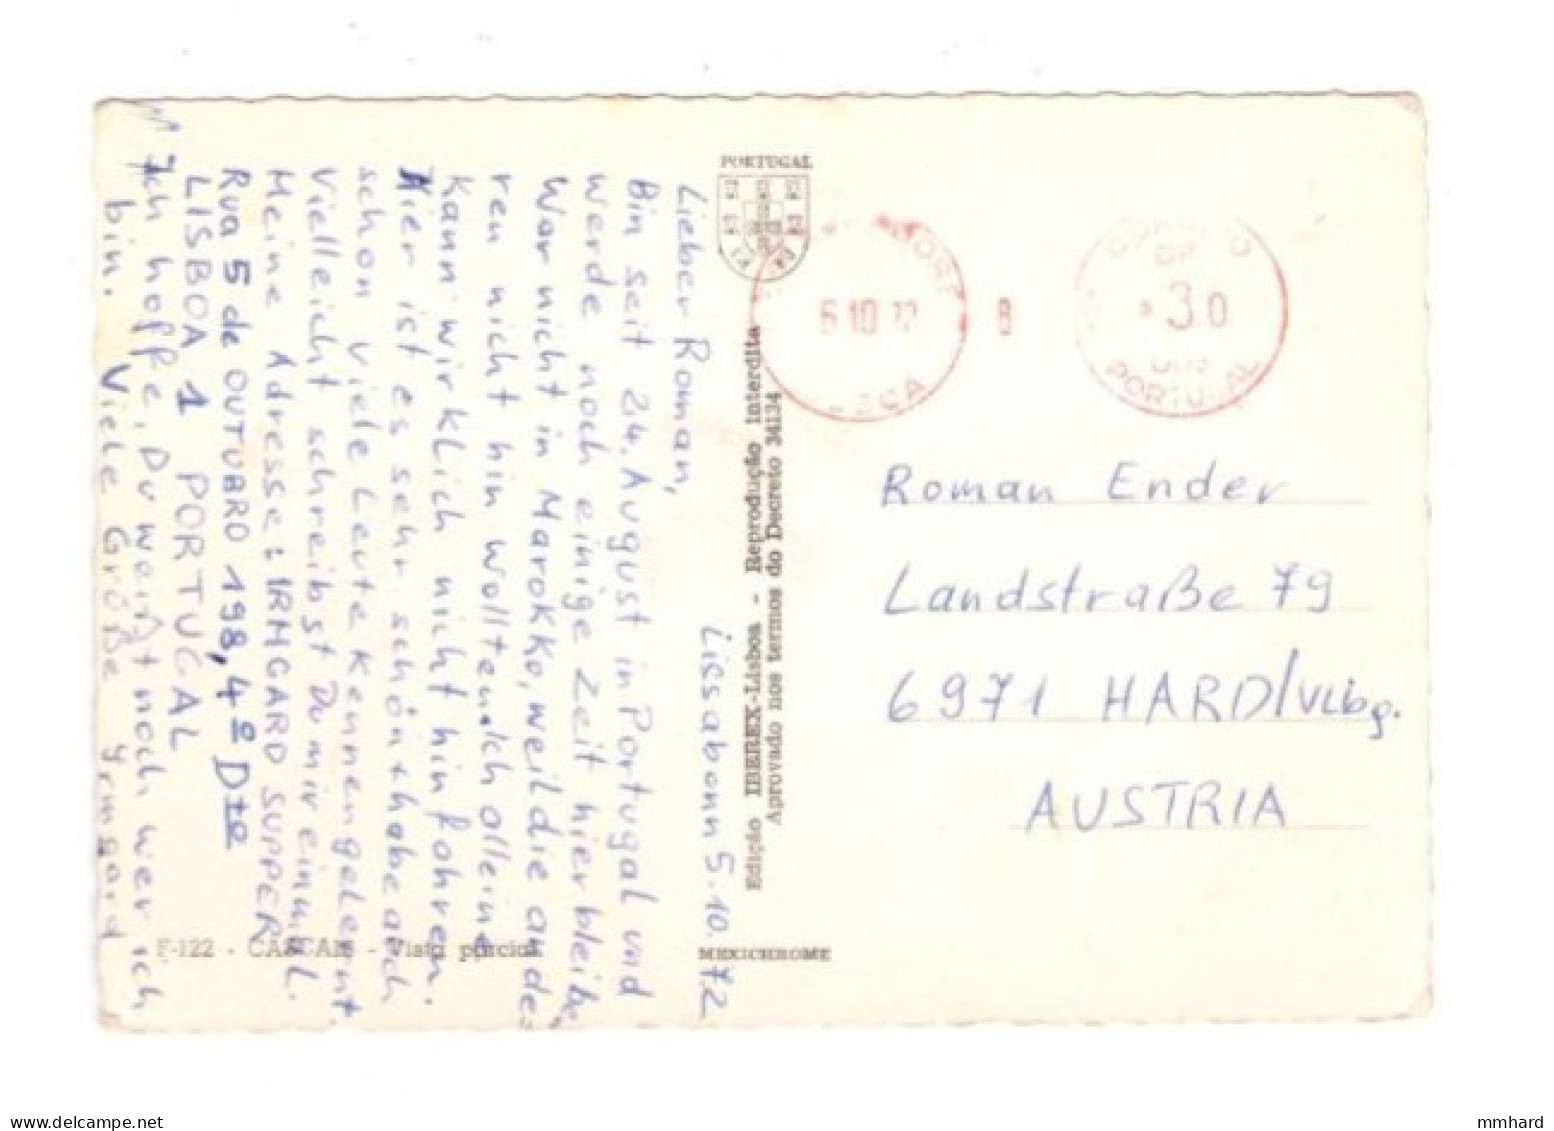 Lissabonn 5.10.72
Lieber Roman,
Bin seit 24. August in Portugal und
werde noch einige Zeit hier bleiben
War nicht in Marokko, weil die ande-
ren nicht hin wollten. Ich alleine
kann wirklich nicht hinfahren.
Hier ist es sehr schön + habe auch
schon viele Leute kennengelernt.
Vielleicht schreibst Du mir einmal.
Meine Adresse: IRMGARD SUPPER
Rua 5 de OUTUBRO 198, 4º Dto
LISBOA 1 PORTUGAL
Ich hoffe, Du weißt noch wer ich
bin. Viele Grüße Irmgard
F-122 - CASCAIS - Vista parcial
PORTUGAL
Edição IBEREX-Lisboa - Reprodução interdita
Aprovado nos termos do Decreto 34134
MEXICHROME
6 10 72
8
CORREIO
30
PORTUGAL
Roman Ender
Landstraße 79
6971 HARD/Vlbg.
AUSTRIA
mmhard
www.delcampe.net